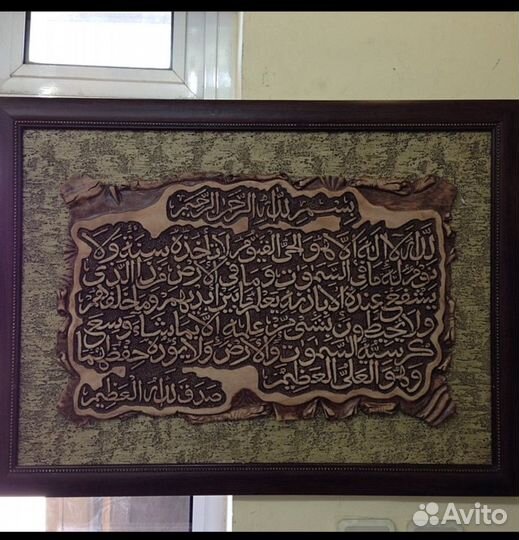 بسم الله الرحمن الرحيم
الله لا اله الا هو الحي القيوم لا تأخذه سنة ولا
نوم له ما في السموت وما في الارض من ذا الذي
يشفع عنده الا باذنه يعلم ما بين ايديهم وما خلفهم
ولا يحيطون بشئ من علمه الا بما شاء وسع
كرسيه السموت والارض ولا يؤده حفظهما
وهو العلي العظيم
صدق الله العظيم
Avito